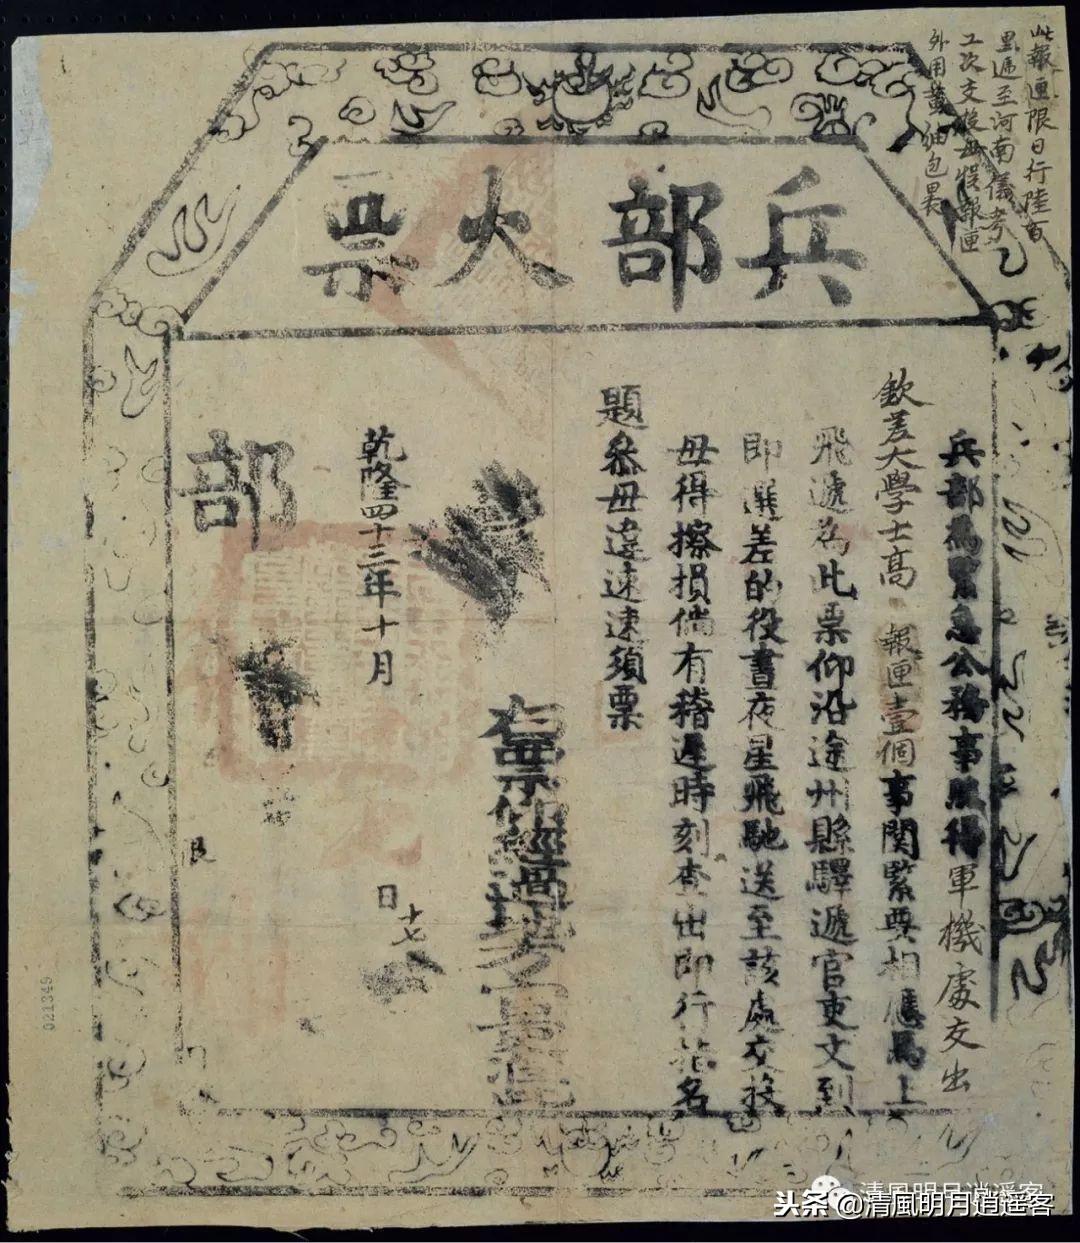 此報匣限日行陸百
里遞至河南儀考
工次交投毋悞報匣
外用黃紬包裹
兵部火票
兵部為緊急公務事照得軍機處交出
欽差大學士高 報匣壹個事關緊要相應馬上
飛遞為此票仰沿途州縣驛遞官吏文到
即選差的役晝夜星飛馳送至該處交投
毋得擦損倘有稽遲時刻查出即行指名
題參毋違速速須票
右票仰經過
乾隆四十三年十月
十七
日
部
021349
清風明月逍遥客
头条 @清風明月逍遥客